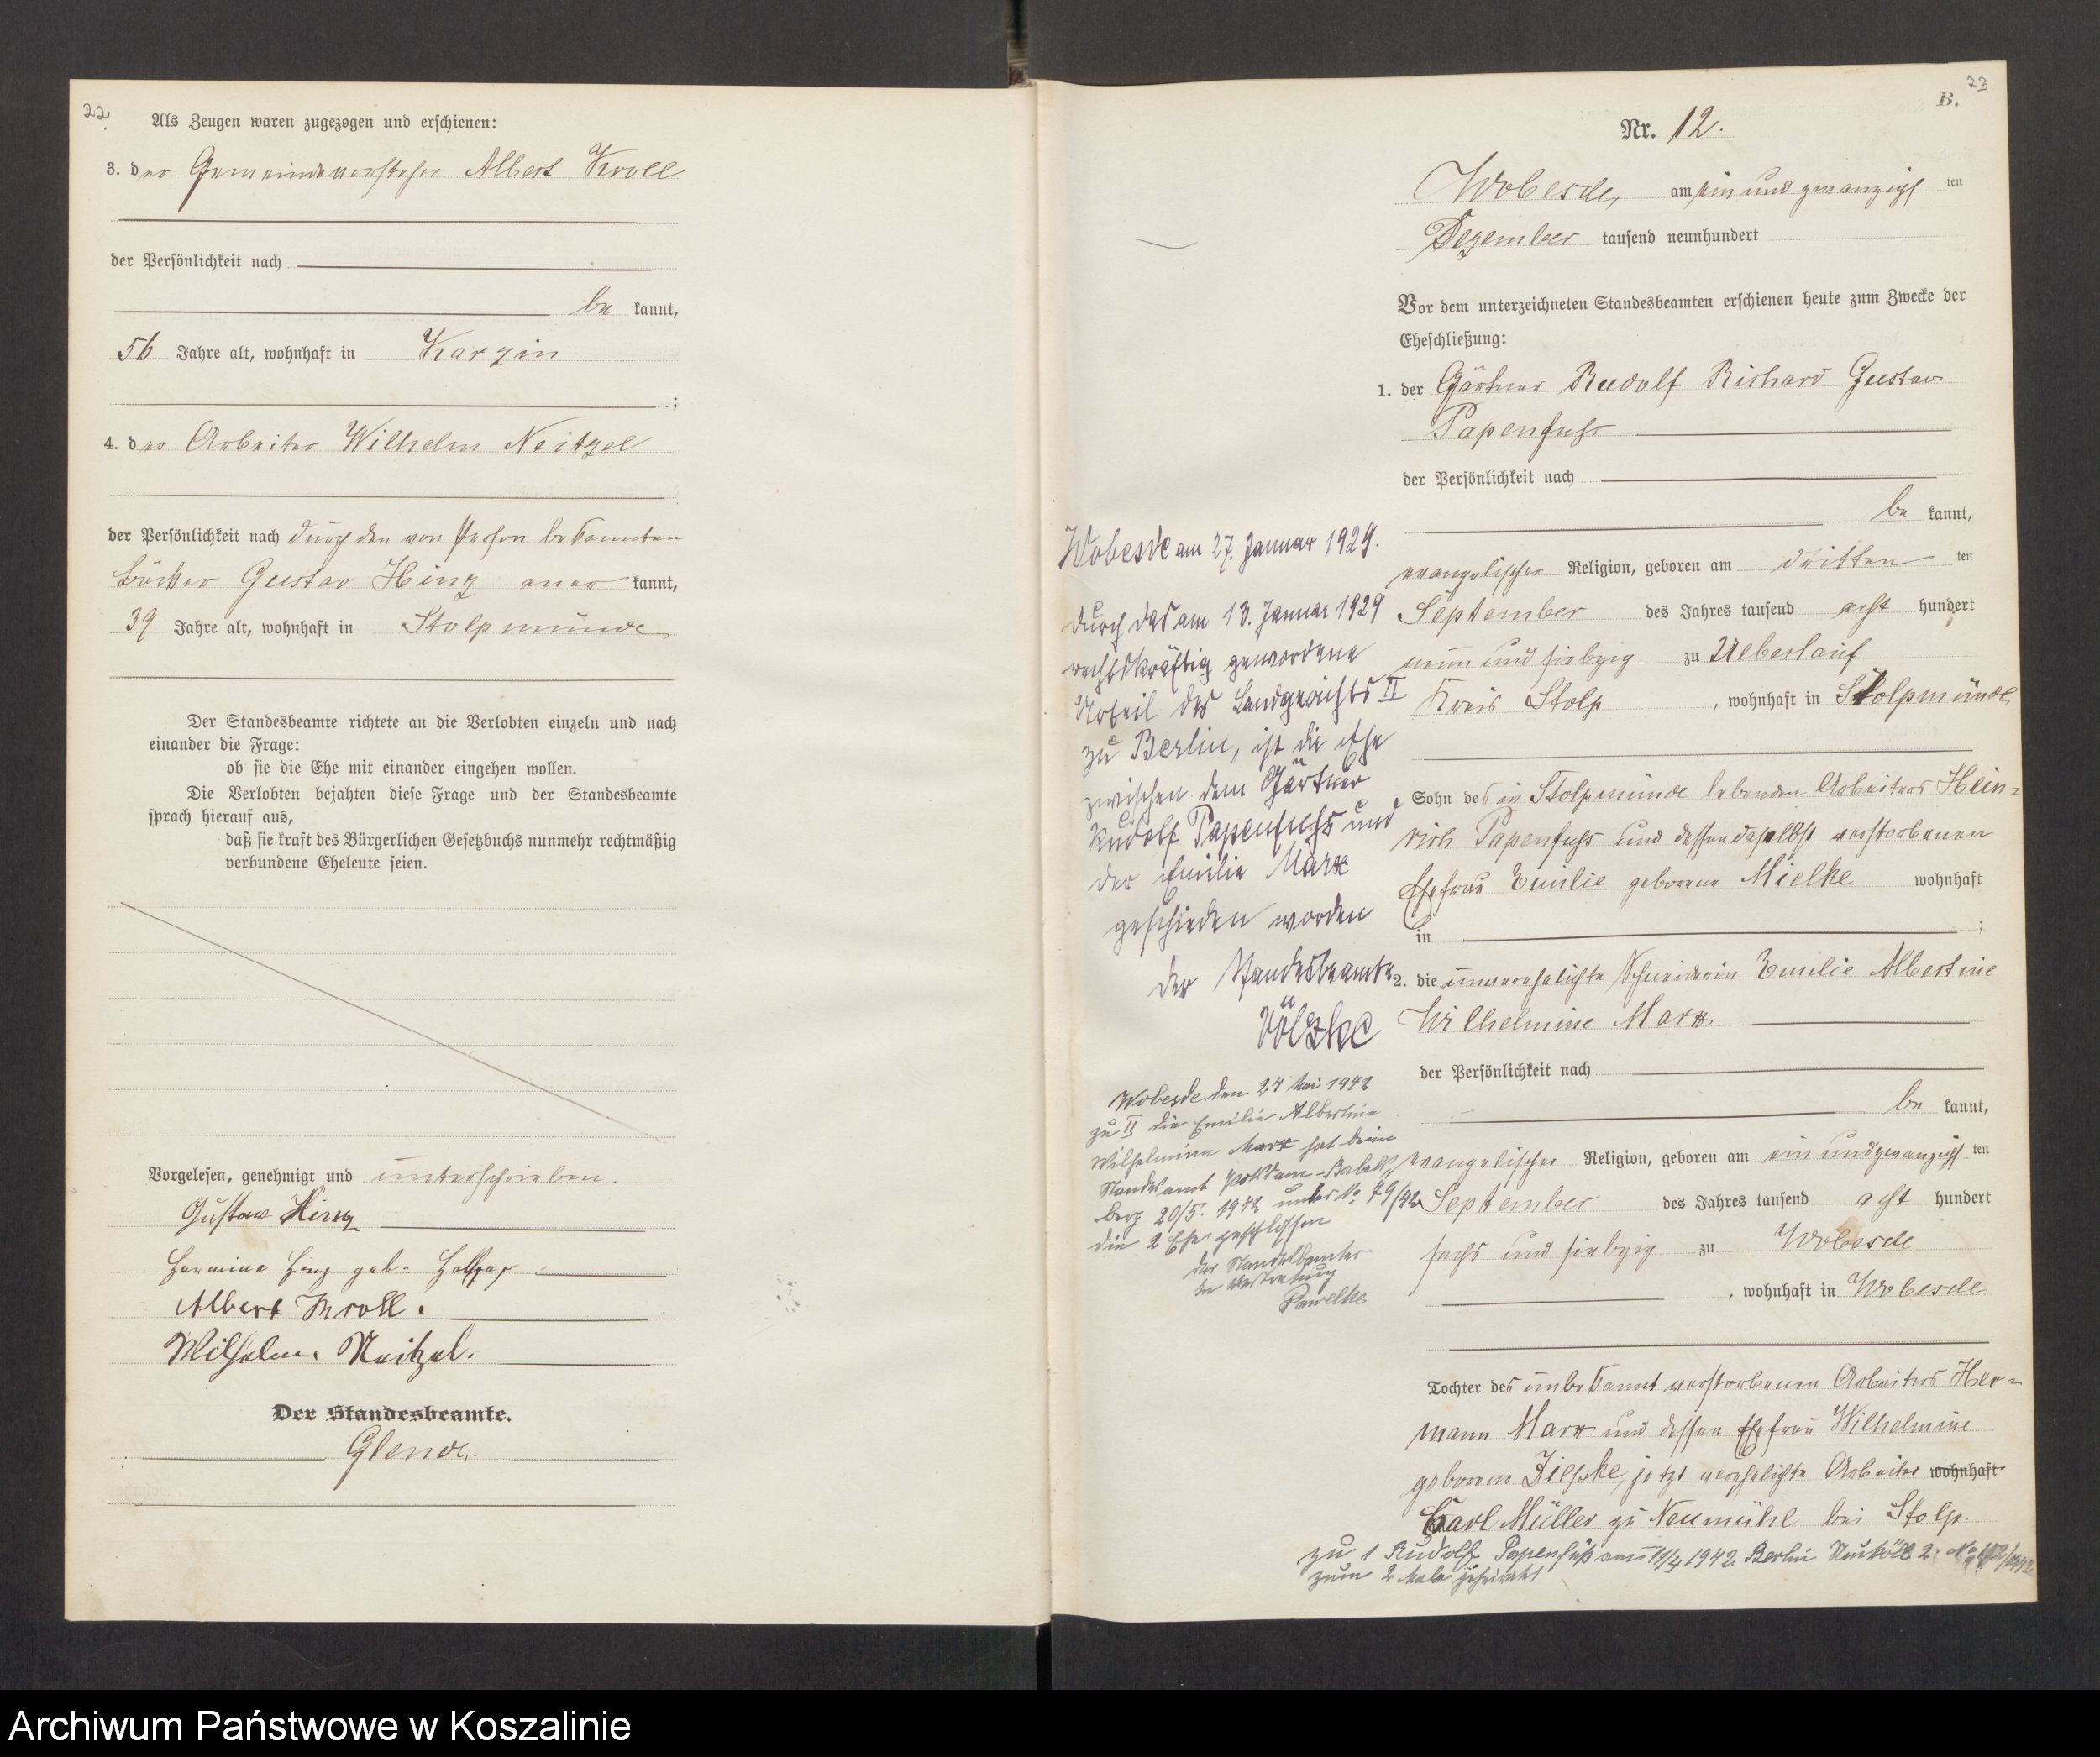 22
Als Zeugen waren zugezogen und erschienen:
3. der Gemeindevorsteher Albert Kroll
der Persönlichkeit nach
be kannt,
56 Jahre alt, wohnhaft in Karzin
;
4. der Arbeiter Wilhelm Neitzel
der Persönlichkeit nach durch den von Person bekannten
Gustav Hinz aner kannt,
39 Jahre alt, wohnhaft in Stolpmünde
Der Standesbeamte richtete an die Verlobten einzeln und nach
einander die Frage:
ob sie die Ehe mit einander eingehen wollen.
Die Verlobten bejahten diese Frage und der Standesbeamte
sprach hierauf aus,
daß sie kraft des Bürgerlichen Gesetzbuchs nunmehr rechtmäßig
verbundene Eheleute seien.
Vorgelesen, genehmigt und unterschrieben.
Gustav Hinz
Hermine Hinz geb.
Albert Kroll.
Wilhelm Neitzel.
Der Standesbeamte.
23
B.
Nr. 12.
Wobesde, am ein und zwanzigs ten
Dezember tausend neunhundert
Vor dem unterzeichneten Standesbeamten erschienen heute zum Zwecke der
Eheschließung:
1. der Gärtner Rudolf Richard Gustav
Papenfuhs
der Persönlichkeit nach
be kannt,
evangelischer Religion, geboren am dritten ten
September des Jahres tausend acht hundert
neun und siebzig zu Ueberlauf
Kreis Stolp, wohnhaft in Stolpmünde
Sohn des in Stolpmünde lebenden Arbeiters Hein-
rich Papenfuhs und dessen daselbst verstorbenen
Ehefrau Emilie geborene Mielke wohnhaft
in ;
2. die unverehelichte Schneiderin Emilie Albertine
Wilhelmine Marx
der Persönlichkeit nach
be kannt,
evangelischer Religion, geboren am ein und zwanzigs ten
September des Jahres tausend acht hundert
sechs und siebzig zu Wobesde
, wohnhaft in Wobesde
Tochter des unbekannt verstorbenen Arbeiters Her-
mann Marx und dessen Ehefrau Wilhelmine
geborene jetzt verehelichte Arbeiter wohnhaft
Carl Müller zu Neumühl bei Stolp.
Wobesde am 27. Januar 1929.
Durch das am 13. Januar 1929
rechtskräftig gewordene
Urteil des Landgerichts II
zu Berlin, ist die Ehe
zwischen dem Gärtner
Rudolf Papenfuhs und
der Emilie Marx
geschieden worden
Der Standesbeamte
Völzke
Wobesde den 24 Mai 1942
zu II die Emilie Albertine
Wilhelmine Marx hat beim
Standesamt Potsdam-Babels-
berg 20/5. 1942 unter No 79/42
die 2 Ehe geschlossen
Der Standesbeamte
In Vertretung
Pawelke
zu 1 Rudolf Papenfuß am 1942 Berlin Neukölln 2
zum 2 Male geheiratet
Archiwum Państwowe w Koszalinie